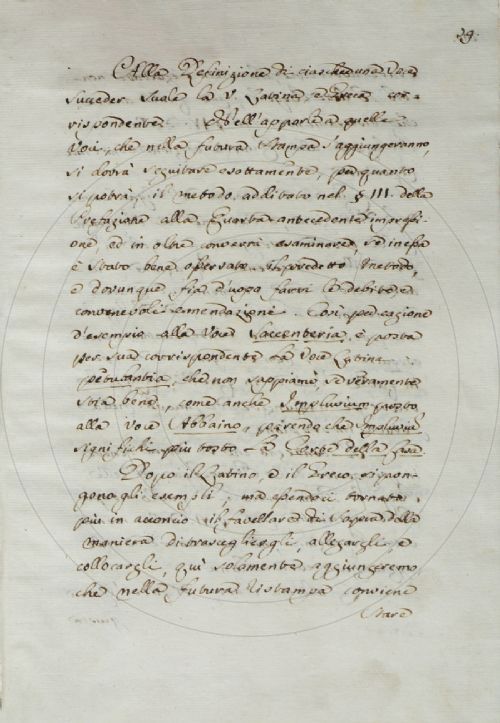 29.
Alla Definizione di ciascheduna Voce
succeder suole la V. Latina, e Greca cor-
rispondente. Nell'apportar quelle
Voci, che nella futura Stampa s'aggiungeranno,
si dovrà seguitare esattamente, per quanto
si potrà, il metodo additato nel § III. della
Prefazione alla Quarta antecedente impressi-
one, ed in oltre converrà esaminare, se in essa
è stato bene osservato il predetto metodo,
e dovunque fia d'uopo farvi le debite, e
convenevoli emendazioni. Così per cagione
d'esempio alla Voce Saccenteria, è posta
per sua corrispondente la Voce Latina
petulantia, che non sappiamo, se veramente
stia bene, come anche Impluvium posto
alla Voce Abbaino, parendo che Impluviũ
significhi più tosto la Corte della Casa.
Dopo il Latino, e il Greco, si pon-
gono gli esempli; ma essendoci tornato
più in acconcio il favellare di sopra della
maniera di trascegliergli, allegargli, e
collocargli, quì solamente aggiungeremo
che nella futura Ristampa conviene
stare